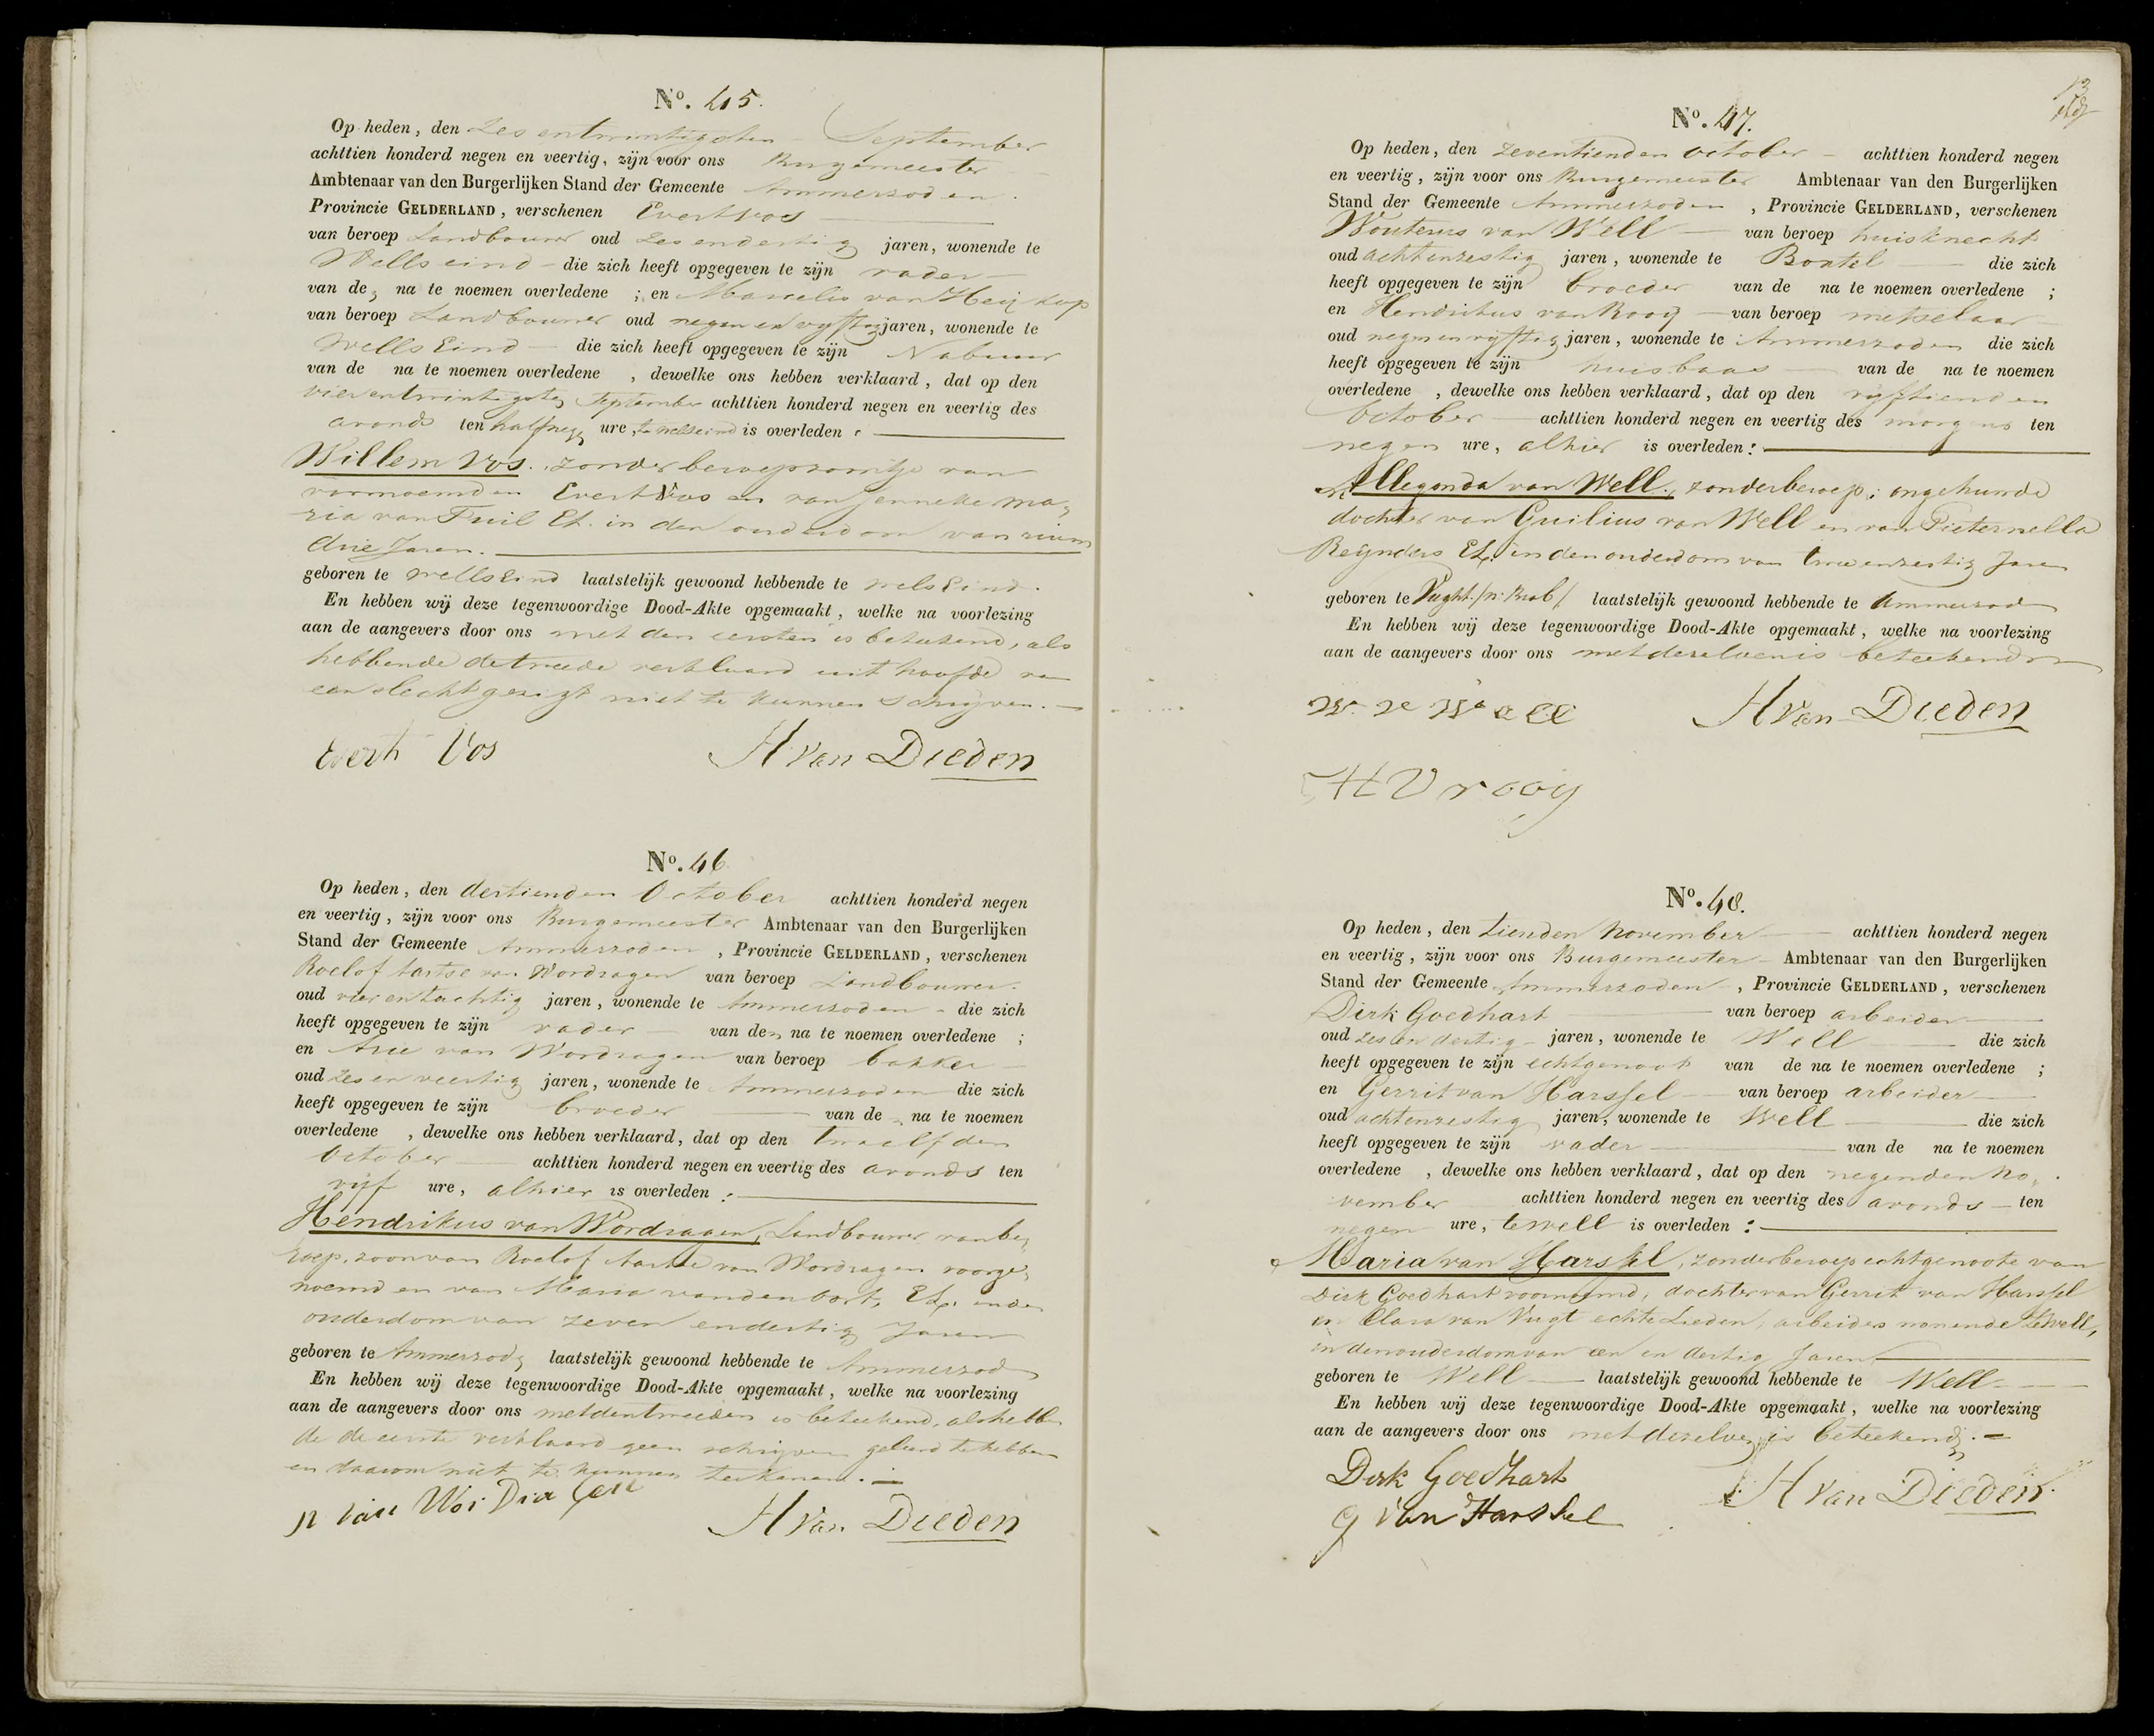 No. 45.
Op heden, den Zes entwintigsten September
achttien honderd negen en veertig, zijn voor ons Burgemeester
Ambtenaar van den Burgerlijken Stand der Gemeente Ammerzoden
Provincie GELDERLAND, verschenen Evert Vos
van beroep Landbouwer oud zes en dertig jaren, wonende te
Wells eind die zich heeft opgegeven te zijn vader
van de, na te noemen overledene ; en Marcelis van Heijkop
van beroep Landbouwer oud negen en vyftig jaren, wonende te
Wells Eind die zich heeft opgegeven te zijn Nabuur
van de na te noemen overledene , dewelke ons hebben verklaard, dat op den
vierentwintigsten September achttien honderd negen en veertig des
avonds ten half neg. ure, te wellseind is overleden :
Willem Vos., zonder beroep zoontje van
voornoemden Evert Vos en van Jenneke Ma,
ria van Tuil El. in den ouderdom van ruim
drie Jaren.
geboren te wellseind laatstelijk gewoond hebbende te wels Eind.
En hebben wij deze tegenwoordige Dood-Akte opgemaakt, welke na voorlezing
aan de aangevers door ons met den eersten is beteekend, als
hebbende de tweede verklaard uit hoofde van
een slecht gezigt niet te kunnen schryven.
Evert Vos H van Dieden
No. 46
Op heden, den dertienden October achttien honderd negen
en veertig, zijn voor ons Burgemeester Ambtenaar van den Burgerlijken
Stand der Gemeente Ammerzoden , Provincie GELDERLAND, verschenen
Roelof Aartse van Wordragen van beroep Landbouwer.
oud vier en tachtig jaren, wonende te Ammerzoden die zich
heeft opgegeven te zijn vader van den na te noemen overledene ;
en Arie van Wordragen van beroep bakker
oud Zes en veertig jaren, wonende te Ammerzoden die zich
heeft opgegeven te zijn broeder van de na te noemen
overledene , dewelke ons hebben verklaard, dat op den twaalfden
October achttien honderd negen en veertig des avonds ten
vijf ure, alhier is overleden :
Hendrikus van Wordragen, Landbouwer van be,
roep, zoon van Roelof Aartse van Wordragen voorge,
noemd en van Maria van den Oort, El. in den
ouderdom van zeven en dertig Jaren
geboren te Ammerzod, laatstelijk gewoond hebbende te Ammerzod
En hebben wij deze tegenwoordige Dood-Akte opgemaakt, welke na voorlezing
aan de aangevers door ons met den tweeden is beteekend, als hebben
de de eerste verklaard geen schrijven geleerd te hebben
en daarom niet te kunnen teekenen.
van H van Dieden
13
No. 47.
Op heden, den zeventienden October achttien honderd negen
en veertig, zijn voor ons Burgemeester Ambtenaar van den Burgerlijken
Stand der Gemeente Ammerzoden , Provincie GELDERLAND, verschenen
Wouterus van Well van beroep huisknecht
oud achtenzestig jaren, wonende te Boxtel die zich
heeft opgegeven te zijn broeder van de na te noemen overledene ;
en Hendrikus van Rooy van beroep metselaar
oud negen en vijftig jaren, wonende te Ammerzoden die zich
heeft opgegeven te zijn huisbaas van de na te noemen
overledene , dewelke ons hebben verklaard, dat op den vyftienden
October achttien honderd negen en veertig des morgens ten
negen ure, alhier is overleden :
Allegonda van Well., zonder beroep, ongehuwde
dochter van Guilius van Well en van Pieternella
Reijnders El. in den ouderdom van twee en zestig Jaren
geboren te Vught /n: Brab/ laatstelijk gewoond hebbende te Ammerzod
En hebben wij deze tegenwoordige Dood-Akte opgemaakt, welke na voorlezing
aan de aangevers door ons met dezelven is beteekend.
W. v Well H van Dieden
H V rooy
No. 48.
Op heden, den tienden November achttien honderd negen
en veertig, zijn voor ons Burgemeester Ambtenaar van den Burgerlijken
Stand der Gemeente Ammerzoden , Provincie GELDERLAND, verschenen
Dirk Goedhart van beroep arbeider
oud zes en dertig jaren, wonende te Well die zich
heeft opgegeven te zijn echtgenoot van de na te noemen overledene ;
en Gerrit van Harssel van beroep arbeider
oud achtenzestig jaren, wonende te Well die zich
heeft opgegeven te zijn vader van de na te noemen
overledene , dewelke ons hebben verklaard, dat op den negenden No,
vember achttien honderd negen en veertig des avonds ten
negen ure, te well is overleden :
Maria van Harssel, zonder beroep echtgenoote van
Dirk Goedhart voornoemd, dochter van Gerrit van Harssel
en Clara van Vugt echte Lieden, arbeiders wonende te Well,
in den ouderdom van een en dertig Jaren
geboren te Well laatstelijk gewoond hebbende te Well
En hebben wij deze tegenwoordige Dood-Akte opgemaakt, welke na voorlezing
aan de aangevers door ons met dezelven is beteekend.
Dirk Goedhart H van Dieden.
G van Harssel